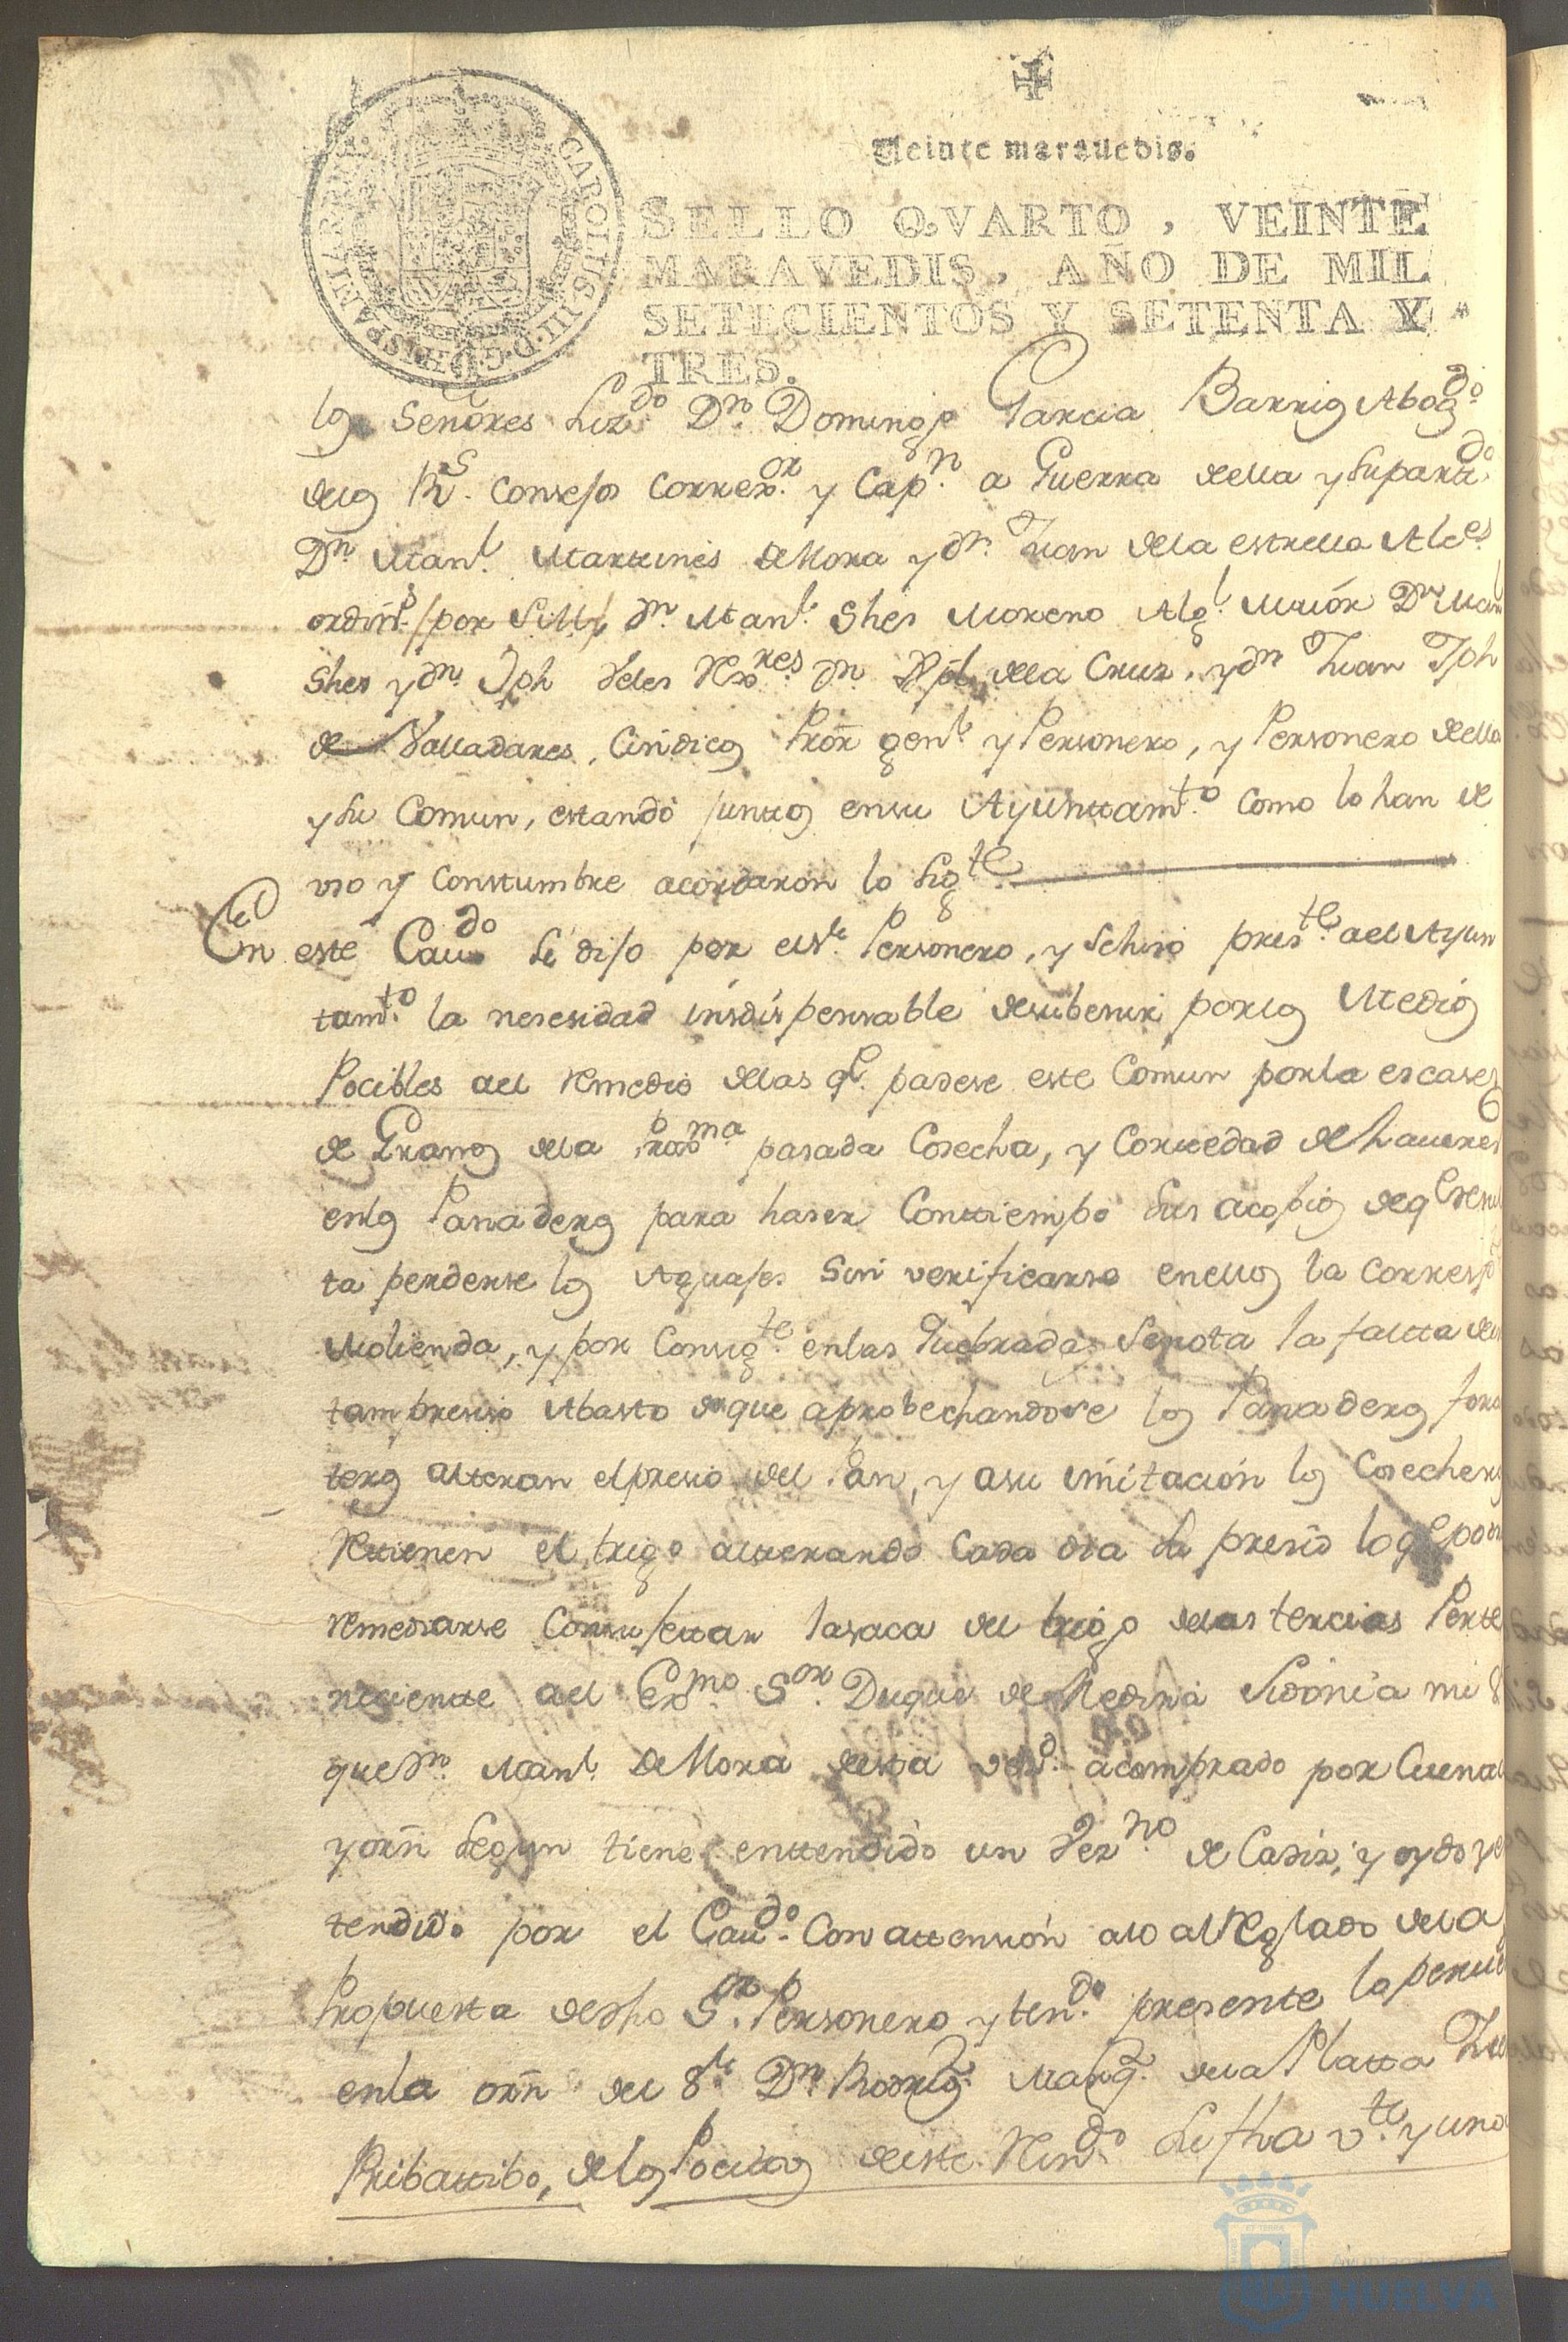 Veinte marauedis.
CAROLUS III D.G. HISPANIAR REX
SELLO QVARTO, VEINTE
MARAVEDIS, AÑO DE MIL
SETECIENTOS Y SETENTA Y
TRES.
los Señores Lizdo Dn Domingo Garcia Barrios Abogdo
delos Rs Consejos Correxor y Capn a Guerra della y Supartdo
Dn Manl Martines de Mora y dn Juan dela estrella Alces
ordins por dn Manl Shes Moreno Algl Maior Dn Man
Shes y dn Jph Veles Rexres dn dela Cruz, y dn Juan Jph
de Valladares, Cindicos Pror genl y Personero, y Personero della
y su Comun, estando juntos ensu Ayunttamto como lo han de
uso y Constumbre acordaron lo sigte
En este Cavdo se dijo por elSr Personero, y se hiso preste ael Ayun
tamto la nesesidad insdispensable desubenir porlos Medios
Pocibles ael remedio delas qe padese este Comun porla escases
de Granos dela Proxma pasada Cosecha, y Cortedad de haveres
enlos Panaderos para haser Conttiempo sus acopios deqe resul
ta perderse los Aguajes sin verificarse enellos la Corresp
Molienda, y por Consigte enlas quebradas Senota la faltta de
tam presiso Abasto deque aprobechandose los Panaderos fora
teros alteran elpresio del Pan, y asu imitacion los Cosecheros
Rettienen el trigo altterando Cada dia su presio loqe podra
remediarse Consujettar lasaca del trigo delas tercias Perte
neciente ael Exmo Sor Duque de Medina Sidonia mi S
que dn Manl de Mora desta vesd acomprado por Cuenta
y orn Segun tiene enttendido un Vezno de Cadix, y oydo y e
tendido por el Cavdo Con attension alo alReglado dela
Propuesta dedho Sor Personero y tendo presente lo
enla orn del Sr Dn Rodrigo Marqz dela Platta Jues
Pribattibo, delos Pocitos deeste Reindo Sufha vte y uno
Ayuntamiento
HUELVA